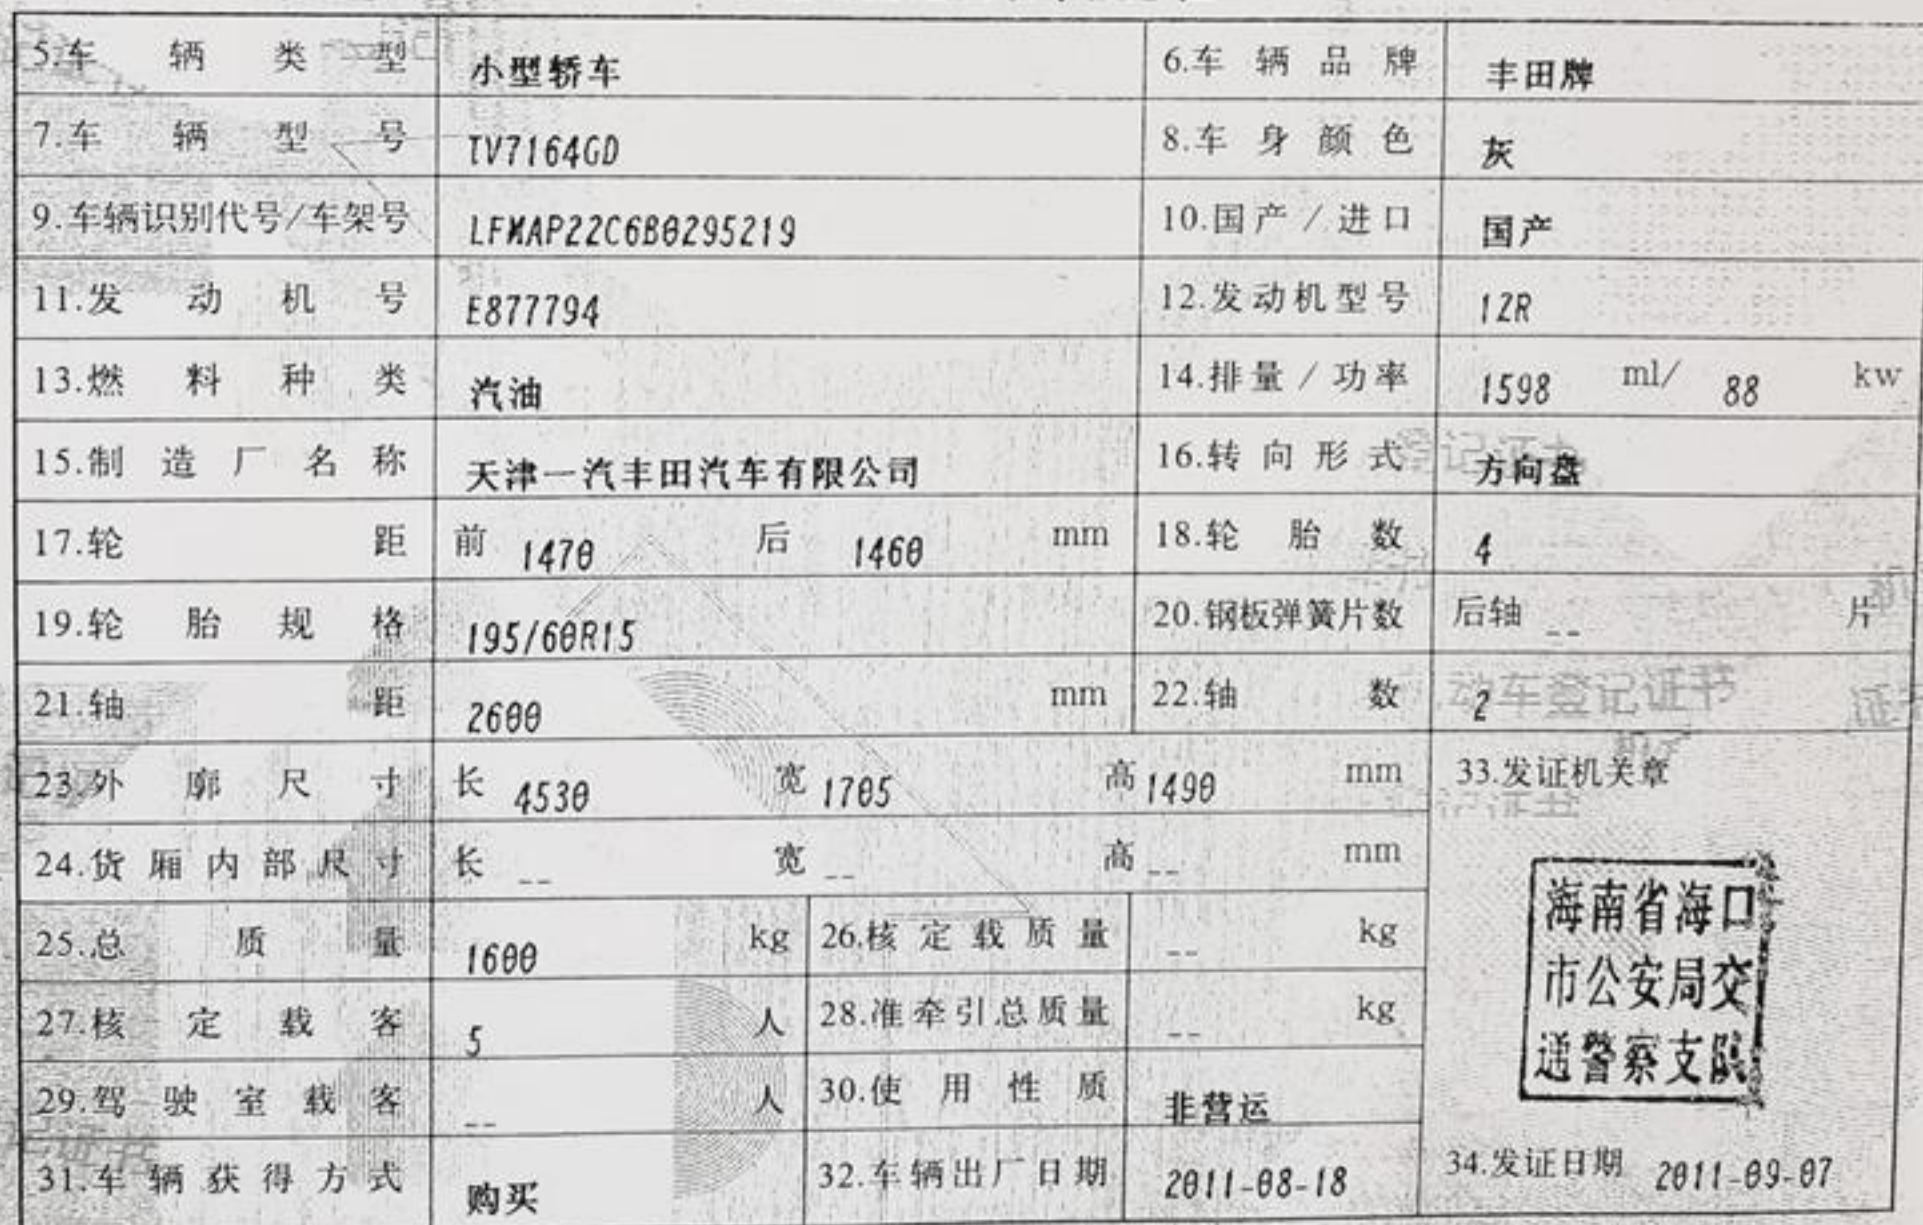 5.车辆类型 小型轿车 6.车辆品牌 丰田牌
7.车辆型号 TV7164GD 8.车身颜色 灰
9.车辆识别代号/车架号 LFMAP22C6B0295219 10.国产/进口 国产
11.发动机号 E877794 12.发动机型号 1ZR
13.燃料种类 汽油 14.排量/功率 1598 ml/ 88 kw
15.制造厂名称 天津一汽丰田汽车有限公司 16.转向形式 方向盘
17.轮距 前 1470 后 1460 mm 18.轮胎数 4
19.轮胎规格 195/60R15 20.钢板弹簧片数 后轴 -- 片
21.轴距 2600 mm 22.轴数 2
23.外廓尺寸 长 4530 宽 1705 高 1490 mm 33.发证机关章
24.货厢内部尺寸 长 -- 宽 -- 高 -- mm
海南省海口
市公安局交
通警察支队
25.总质量 1600 kg 26.核定载质量 -- kg
27.核定载客 5 人 28.准牵引总质量 -- kg
29.驾驶室载客 -- 人 30.使用性质 非营运
31.车辆获得方式 购买 32.车辆出厂日期 2011-08-18 34.发证日期 2011-09-07